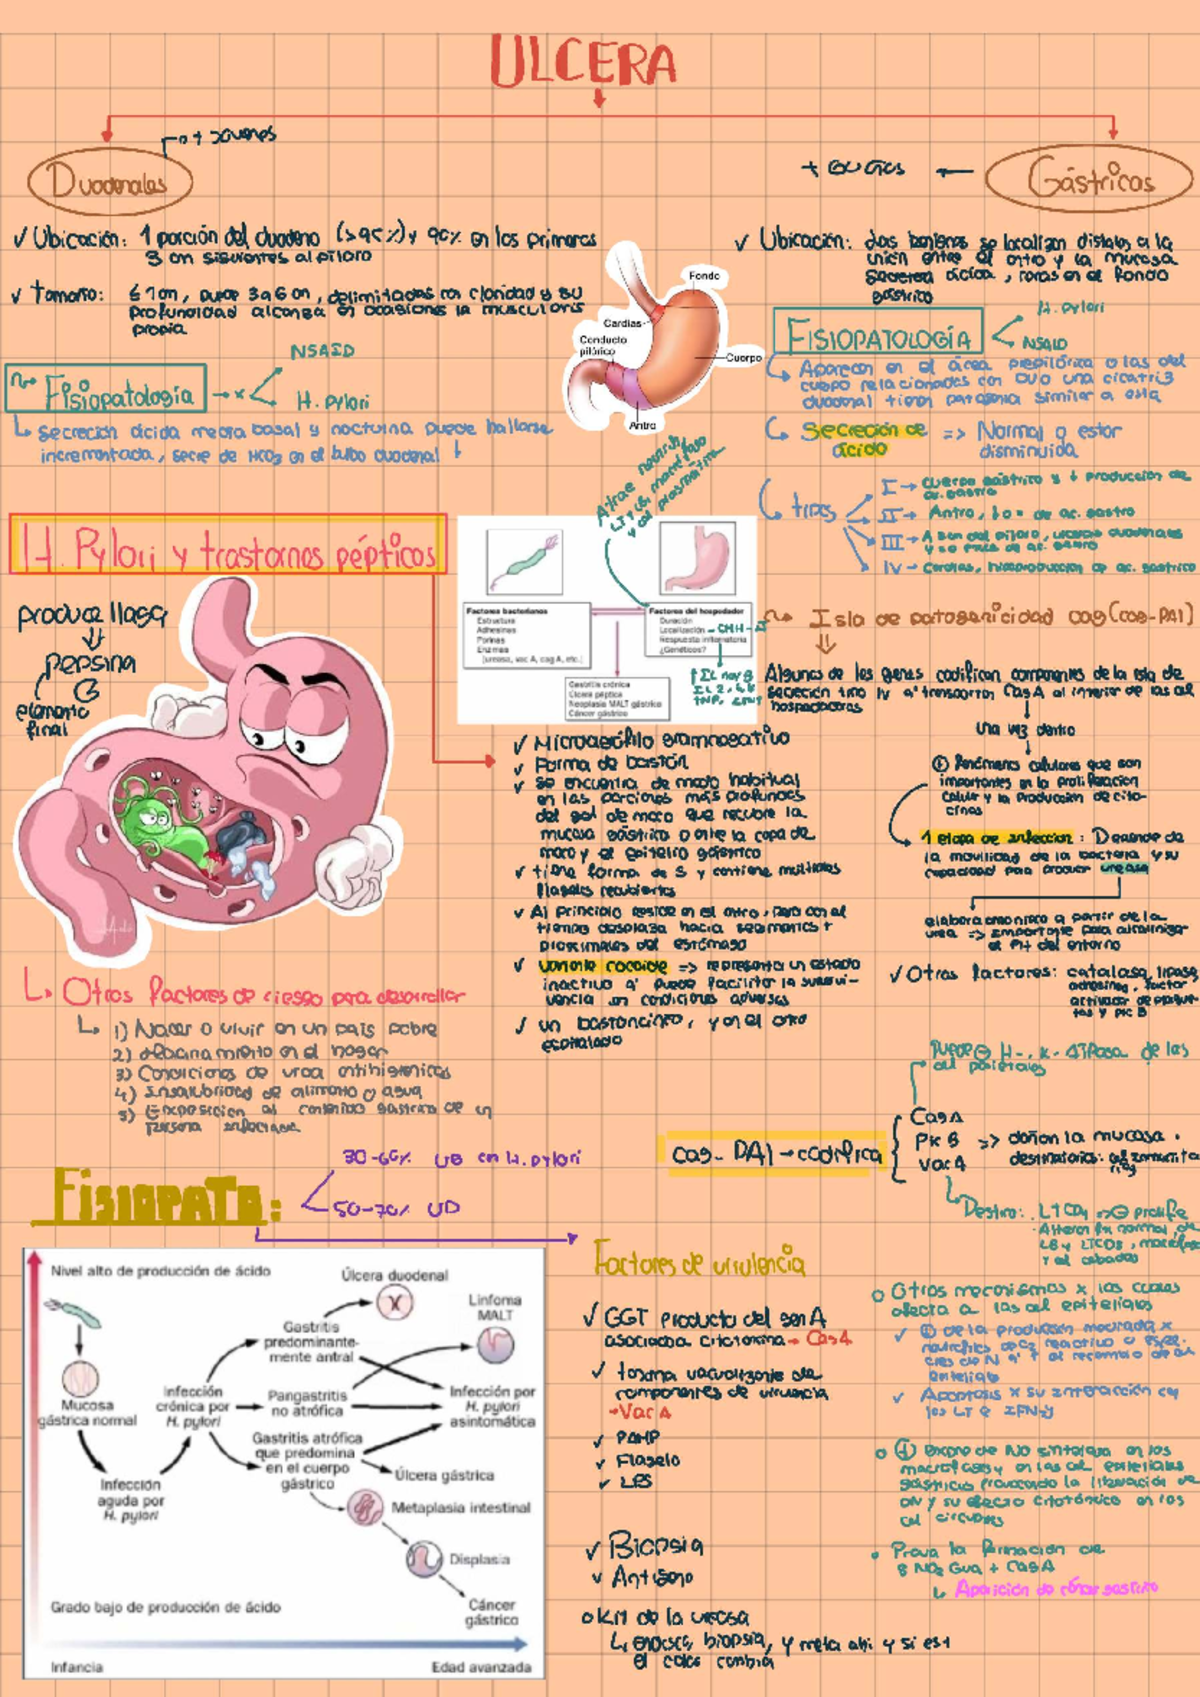 ULCERA
+ Jovenes
Duodenales
✓ Ubicación: 1 porción del duodeno (>95%) y 90% en los primeros
3 cm siguientes al píloro
✓ Tamaño: ≤ 1cm, puede 3 a 6 cm, delimitadas con claridad y su
profundidad alcanza en ocasiones la muscularis
propia
Fisiopatología → x
NSAID
H. Pylori
↳ Secreción ácida media basal y nocturna puede hallarse
incrementada, secre de HCO3 en el bulbo duodenal ↓
Gástricas
✓ Ubicación: las benignas se localizan distales a la
unión entre el antro y la mucosa
secretora ácida, raras en el fondo
gástrico
FISIOPATOLOGÍA
H. Pylori
NSAID
↳ Aparecen en el área prepilórica o las del
cuerpo relacionadas con DUO una cicatriz
duodenal tienen patogenia similar a esta
Secreción de ácido => Normal o estar
disminuida
↳ tipos
I → cuerpo gástrico y ↓ producción de
ac. gastro
II → Antro, ↓ o = de ac. gastro
III → A 3cm del píloro, úlceras duodenales
IV → Cardias, hipoproducción de ac. gastrico
Fondo
Cardias
Conducto
pilórico
Cuerpo
Antro
H. Pylori y trastornos pépticos
produce llaga
⇓
pepsina
elemento
final
Atrae neutrófi
Factores bacterianos
Estructura
Adhesinas
Porinas
Enzimas
(ureasa, vac A, cag A, etc.)
Factores del hospedador
Duración
Localización - CMH-II
Respuesta inflamatoria
¿Genéticos?
Gastritis crónica
Úlcera péptica
Neoplasia MALT gástrica
Cáncer gástrico
✓ Microaerófilo gramnegativo
✓ Forma de bastón
✓ Se encuentra de modo habitual
en las porciones más profundas
del gel de moco que recubre la
mucosa gástrica o ente la capa de
moco y el epitelio gástrico
✓ tiene forma de S y contiene múltiples
flagelos recubiertos
✓ Al principio reside en el antro, pero con el
tiempo desplaza hacia segmentos +
proximales del estómago
✓ Variante cocoide => representa un estado
inactivo q' puede facilitar la supervi-
vencia en condiciones adversas
✓ un bastoncito, y en el otro
espiralado
~> Isla de patogenicidad cag (cag-PAI)
⇓
Algunos de los genes codifican componentes de la isla de
secreción tipo IV q' transporta CagA al interior de las cel
hospedadoras
una vez dentro
① Fenómenos celulares que son
importantes en la proliferación
celular y la producción de cito-
cinas
1 etapa de infección: Depende de
la movilidad de la bacteria y su
capacidad para producir ureasa
elabora amoniaco a partir de la
urea => importante para alcalinizar
el PH del entorno
✓ Otros factores: catalasa, lipasa,
adhesinas, factor
activador de plaque-
tas y pic B
↳ Otros factores de riesgo para desarrollar
↳ 1) Nacer o vivir en un país pobre
2) Hacinamiento en el hogar
3) Condiciones de vida antihigienicas
4) Insalubridad de alimento o agua
5) Exposición al contenido gastrico de un
persona infectada
Puede ⊖ H-, K- ATPasa de las
cel parietales
cag- PAI → codifica
CagA
Pic B => dañan la mucosa
VacA
↳ Destino: LTCD4 => ⊖ prolife
FISIOPATO:
30-60% UG con H. pylori
50-70% UD
Nivel alto de producción de ácido
Úlcera duodenal
Linfoma
MALT
Gastritis
predominante-
mente antral
Mucosa
gástrica normal
Infección
crónica por
H. pylori
Pangastritis
no atrófica
Infección por
H. pylori
asintomática
Gastritis atrófica
que predomina
en el cuerpo
gástrico
Úlcera gástrica
Infección
aguda por
H. pylori
Metaplasia intestinal
Displasia
Cáncer
gástrico
Grado bajo de producción de ácido
Infancia
Edad avanzada
Factores de virulencia
✓ GGT producto del gen A
asociada citotoxina → CagA
✓ toxina vacuolizante de
componentes de virulencia
→ Vac A
✓ PAMP
✓ Flagelo
✓ LPS
✓ Biopsia
✓ Antígeno
o KM de la ureasa
↳ endosco, biopsia, y meta ahí y si est
el color cambia
o Otros mecanismos x los cuales
afecta a las cel epiteliales
✓ Apoptosis x su interacción con
los LT e IFN-γ
• Prova la formación de
8 NO2 Gua + CagA
↳ Aparición de cáncer gastrico